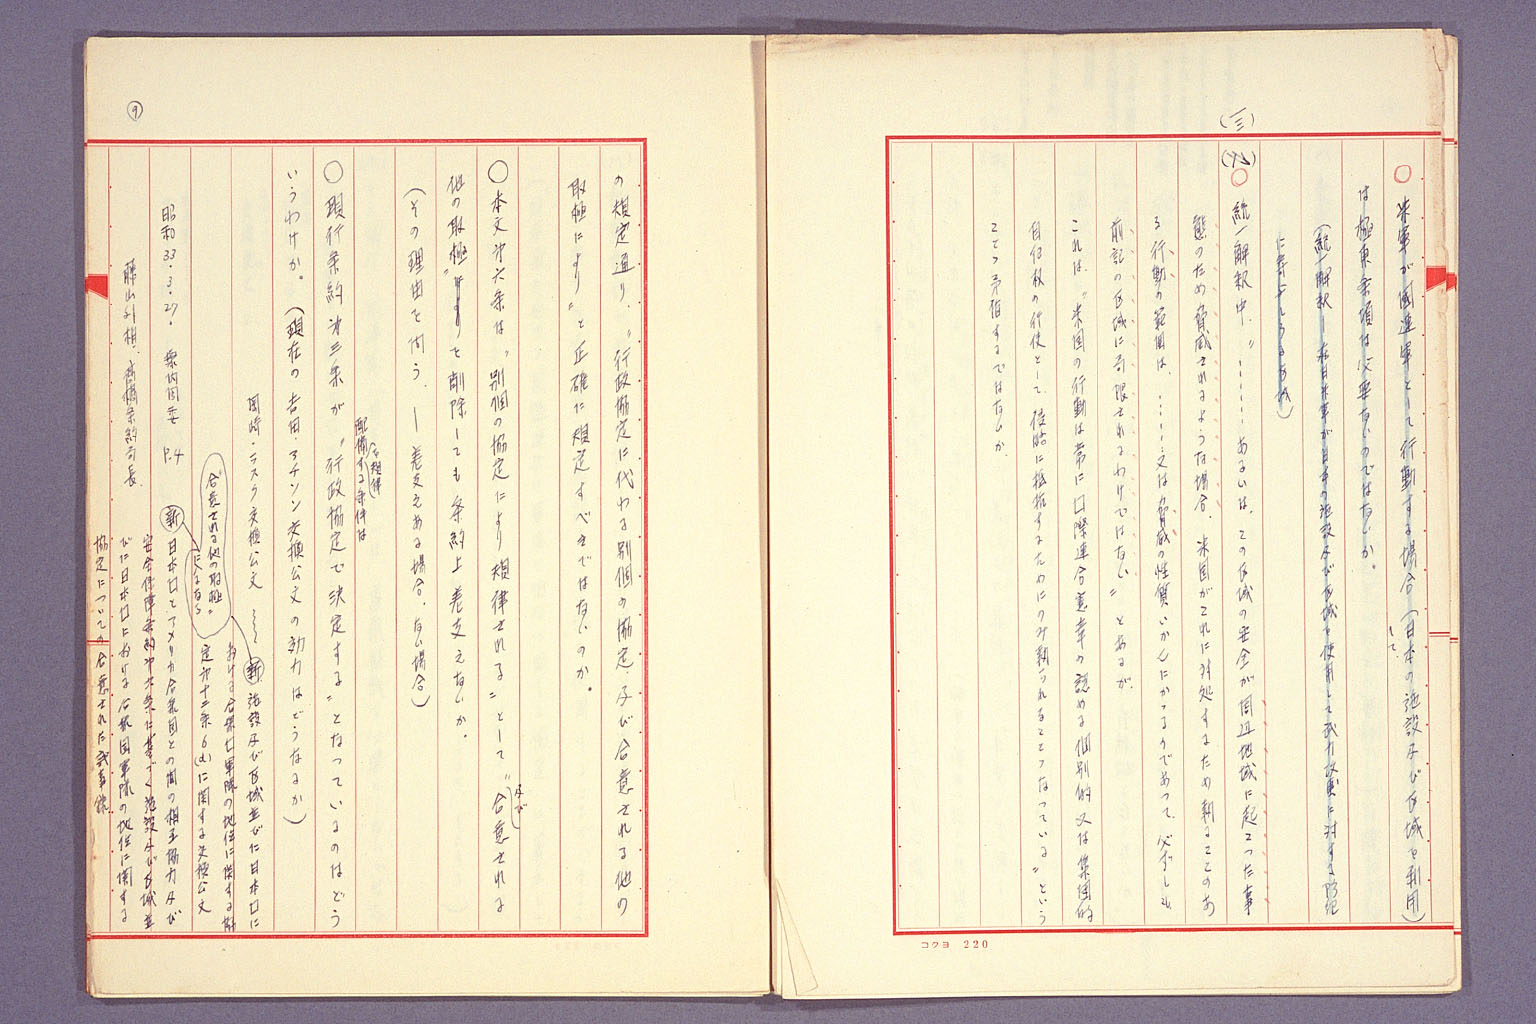 (三)
○ 米軍が国連軍として行動する場合(日本の施設及び区域を利用して)
は極東条項は必要ないのではないか。
(統一解釈―在日米軍が日本の施設及び区域を使用して武力攻撃に対する防衛
に寄与しうる区域)
○ 統一解釈中、"……あるいは、この区域の安全が周辺地域に起こった事
態のため脅威されるような場合、米国がこれに対処するため執ることのあ
る行動の範囲は、……又は脅威の性質いかんにかかるのであって、必ずしも
前記の区域に局限されるわけではない" とあるが、
これは、"米国の行動は常に国際連合憲章の認める個別的又は集団的
自衛权の行使として侵略に抵抗するためにのみ執られることとなっている" という
ことと矛盾するではないか
⑨
の規定通り、"行政協定に代わる別個の協定及び合意される他の
取極により" と正確に規定すべきではないのか。
○ 本文第六条は、"別個の協定により規律される" として、"及び合意される
他の取極" により を削除しても条約上差支えないか。
(その理由を問う。―差支えある場合、ない場合)
配備する条件は
(を規律
○ 現行条約第三条が、"行政協定で決定する" となっているのはどう
いうわけか。(現在の吉田・アチソン交換公文の効力はどうなるか)
岡崎・ラスク交換公文
新 施設及び区域並びに日本国に
おける合衆国軍隊の地位に関する協
定第十二条6(d)に関する交換公文
"合意される他の取極"
になる
昭和33.3.27. 衆内閣委 P.4
新 日本国とアメリカ合衆国との間の相互協力及び
安全保障条約第六条に基づく施設及び区域並
びに日本国における合衆国軍隊の地位に関する
協定についての合意された議事録
藤山外相、高橋条約局長、
コクヨ 220